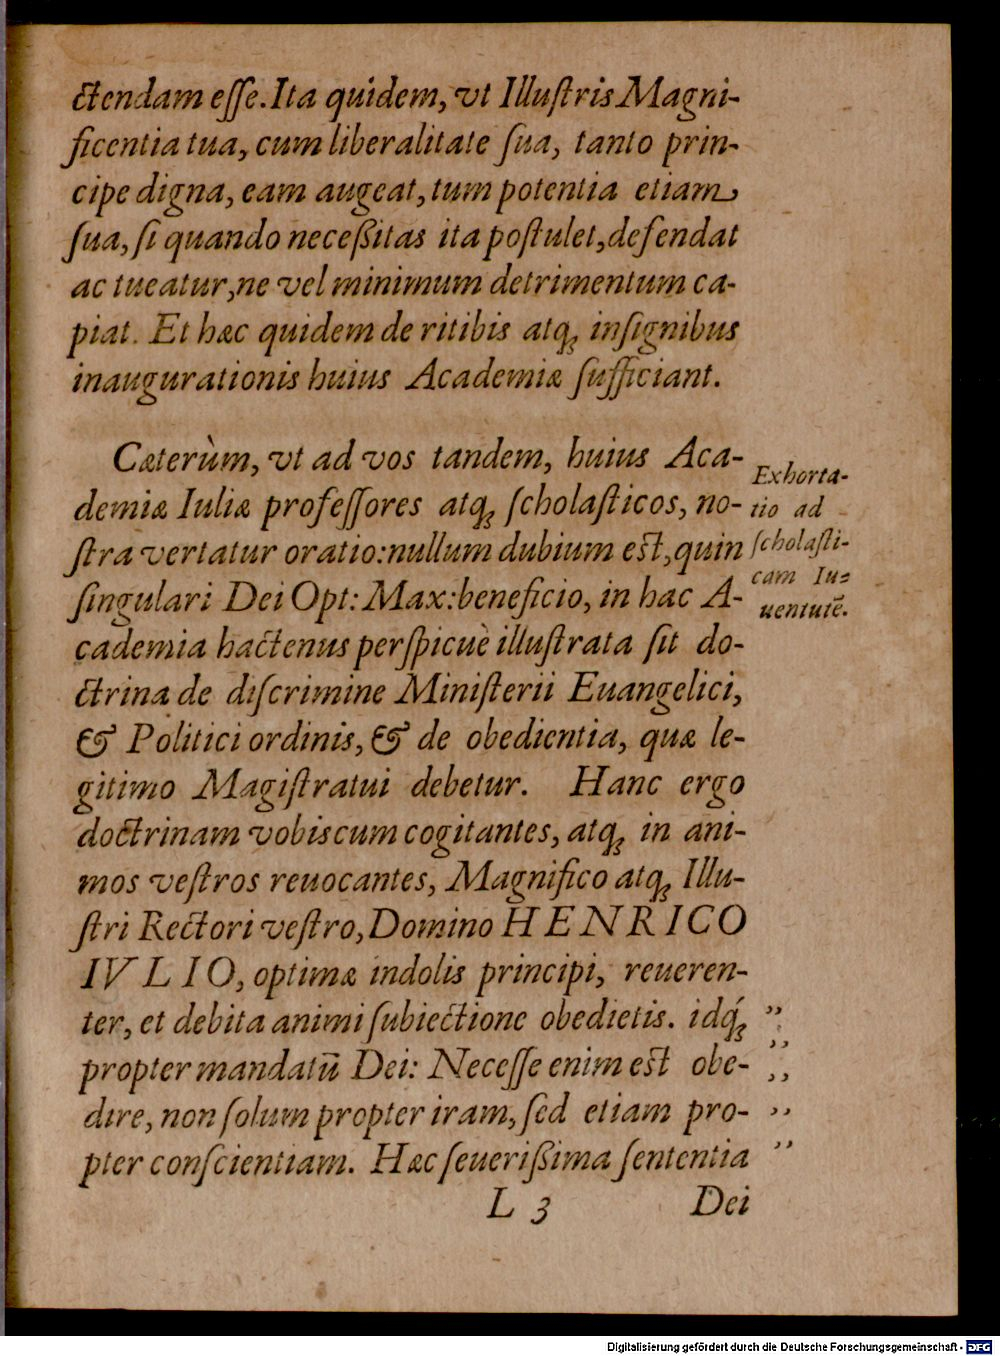 ctendam eſſe. Ita quidem, vt Illuſtris Magni-
ficentia tua, cum liberalitate ſua, tanto prin-
cipe digna, eam augeat, tum potentia etiam
ſua, ſi quando neceßitas ita poſtulet, defendat
ac tueatur, ne vel minimum detrimentum ca-
piat. Et hæc quidem de ritibis atq́ꝫ inſignibus
inaugurationis huius Academiæ ſufficiant.
Cæterùm, vt ad vos tandem, huius Aca-
demiæ Iuliæ profeſſores atqꝫ ſcholaſticos, no-
ſtra vertatur oratio: nullum dubium eſt, quin
ſingulari Dei Opt: Max: beneficio, in hac A-
cademia hactenus perſpicuè illuſtrata ſit do-
ctrina de diſcrimine Miniſterii Euangelici,
& Politici ordinis, & de obedientia, quæ le-
gitimo Magiſtratui debetur. Hanc ergo
doctrinam vobiscum cogitantes, atqꝫ in ani-
mos veſtros reuocantes, Magnifico atqꝫ Illu-
ſtri Rectori veſtro, Domino HENRICO
IVLIO, optimæ indolis principi, reueren-
ter, et debita animi ſubiectione obedietis. idq́ꝫ
propter mandatū Dei: Neceſſe enim eſt obe-
dire, non ſolum propter iram, ſed etiam pro-
pter conſcientiam. Hæc ſeuerißima ſententia
L 3 Dei
Exhorta-
tio ad
ſcholaſti-
cam Iu-
uentutē.
,,
,,
,,
,,
,,
Digitalisierung gefördert durch die Deutsche Forschungsgemeinschaft - DFG